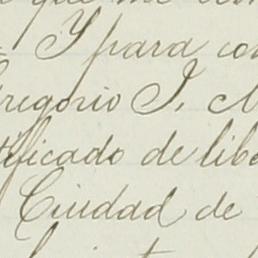 que me
Y para con
Gregorio I. M
tificado de libe
Ciudad de